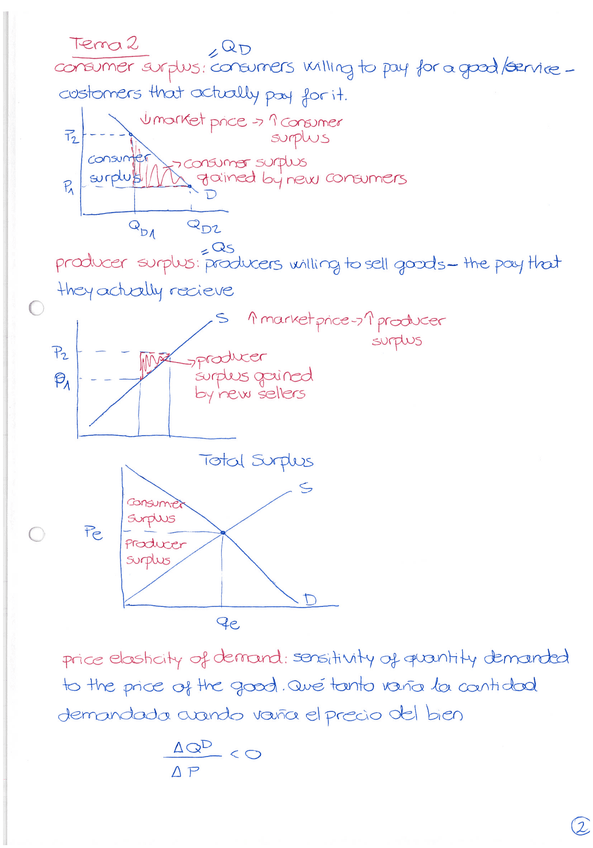 Tema 2
= QD
consumer surplus: consumers willing to pay for a good/service –
customers that actually pay for it.
↓market price → ↑ consumer
surplus
P2
consumer
surplus
→ consumer surplus
gained by new consumers
P1
D
QD1 QD2
= QS
producer surplus: producers willing to sell goods – the pay that
they actually recieve
S
↑ market price → ↑ producer
surplus
P2
→ producer
surplus gained
by new sellers
P1
Total Surplus
S
consumer
surplus
Pe
Producer
surplus
D
qe
price elasticity of demand: sensitivity of quantity demanded
to the price of the good. Qué tanto varía la cantidad
demandada cuando varía el precio del bien
ΔQD
< 0
ΔP
2